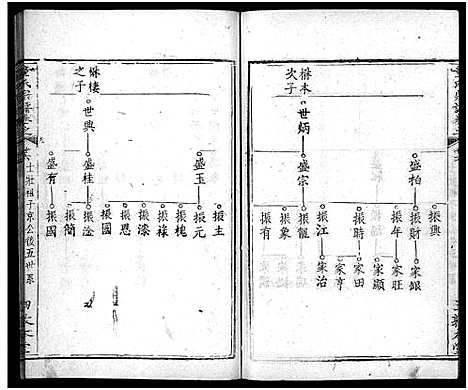 楙木
次子
世炳
盛柏
盛宗
振興
振財
振年
振時
振江
振龍
振象
振有
家銀
家旺
家顯
家田
家亨
家治
楙棲
之子
世興
盛玉
盛桂
盛有
振圭
振元
振槐
振祿
振漆
振恩
振國
振淦
振簡
振國
士壯祖子京公後五世系